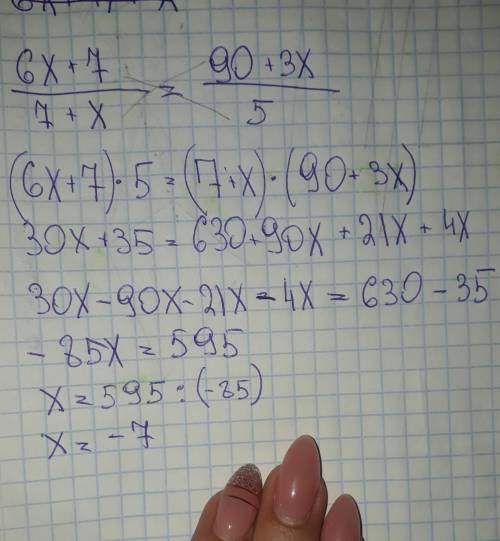 6x+7 / 7+x = 90+3x / 5
(6x+7)·5=(7+x)·(90+3x)
30x+35=630+90x+21x+4x
30x-90x-21x-4x=630-35
-85x=595
x=595:(-85)
x=-7